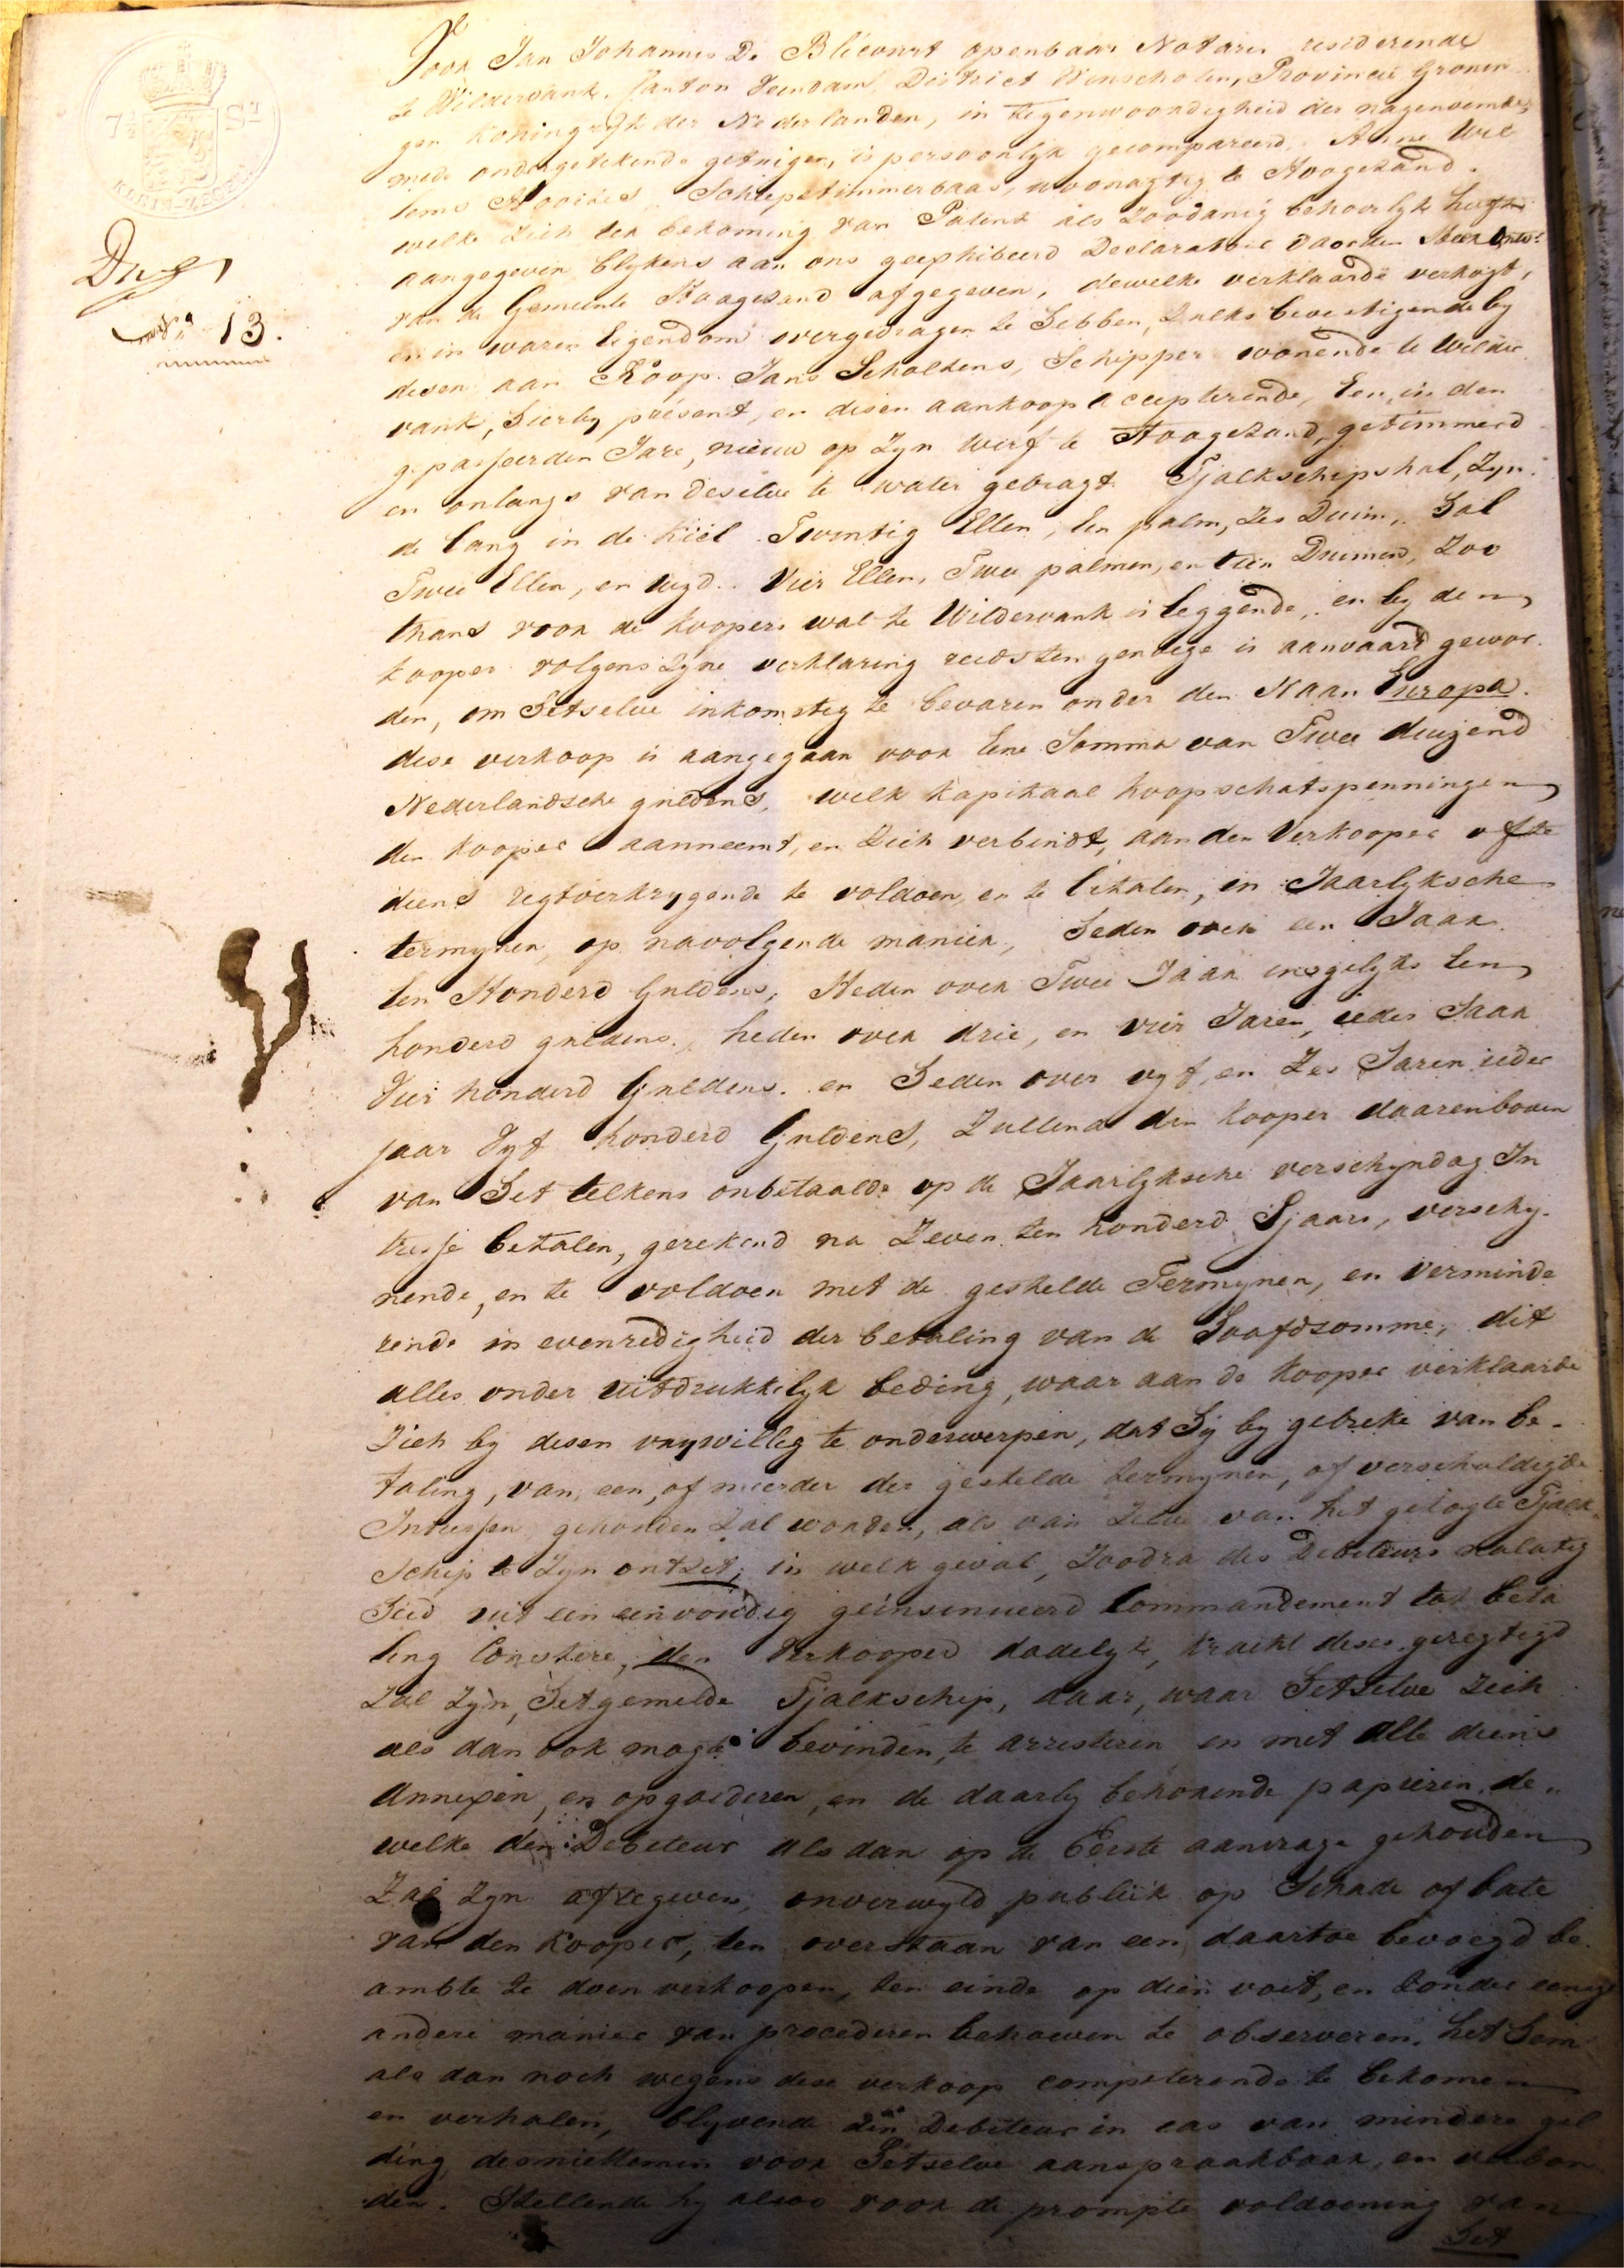 7½ St
KLEIN-ZEGEL
13.
Voor Jan Johannes De Blécourt openbaar Notaris resideerende
te Wildervank, Canton Veendam, District Winschoten, Provincie Gronin-
gen Koningryk der Nederlanden, in tegenwoordigheid der nagenoemde,
mede ondergetekende getuigen, is persoonlyk gecompareerd. Anne Wil
lems Hooites, Scheepstimmerbaas, woonagtig te Hoogezand.
welke zich ter bekoming van Patent als Zoodanig behoorlyk heeft
aangegeven blykens aan ons geexhibeerd Declaratoir door den
van de Gemeente Hoogezand afgegeven, dewelke verklaarde verkogt,
en in waren Eigendom overgedragen te hebben, Zulks bevestigende by
desen aan Roop Jans Scholtens, Schipper wonende te Wilder
vank, hierby present, en desen aankoop accepterende, Een, in den
gepasseerden Jare, nieuw op Zyn werf te Hoogezand, getimmerd
en onlangs van deselve te water gebragt Tjalkschipshol, Zyn-
de lang in de Kiel Twintig Ellen, Een palm, Zes Duim, hol
Twee Ellen, en wyd Vier Ellen, Twee palmen, en tien Duimen, Zoo
thans voor de koopers wal te Wildervank is leggende, en by den
kooper volgens Zyne verklaring reeds ten genoege is aanvaard gewor-
den, om hetselve inkomstig te bevaren onder den Naam Europa.
dese verkoop is aangegaan voor Eene Somma van Twee duizend
Nederlandsche guldens, welk kapitaal koopschatspenningen
den kooper aanneemt, en zich verbindt, aan den Verkooper ofte
diens regtverkrygende te voldoen en te betalen, in Jaarlyksche
termynen, op navolgende manier, heden over een Jaar
Een Honderd Guldens, Heden over Twee Jaar insgelyks Een
honderd guldens, heden over drie, en vier Jaren, ieder Jaar
Vier honderd Guldens. en heden over vyf, en Zes Jaren ieder
jaar Vyf honderd Guldens, Zullende den kooper daarenboven
van het telkens onbetaalde op de Jaarlyksche verschyndag In
tresse betalen, gerekend na Zeven ten honderd 'sjaars, verschy-
nende, en te voldoen met de gestelde Termynen, en verminde
rende in evenredigheid der betaling van de hoofdsomme, dit
alles onder uitdrukkelyk beding, waar aan de kooper verklaarde
Zich by desen vrywillig te onderwerpen, dat hy by gebreke van be-
taling, van een, of meerder der gestelde termynen, of verschuldigde
Intressen, gehouden zal worden, als van zelve van het gekogte Tjalk-
Schip te Zyn ontzet, in welk geval, Zoodra des Debiteurs nalatig
heid uit een eenvoudig geinsinueerd Commandement tot beta
ling Constere, den Verkooper dadelyk, kracht deses geregtigd
zal Zyn, het gemelde Tjalkschip, daar, waar hetzelve zich
als dan ook mogte bevinden, te arresteren en met alle deszelfs
Annexen, en opgoederen, en de daarby behorende papieren, de-
welke den Debiteur als dan op de Eerste aanvrage gehouden
Zal Zyn af te geven, onverwyld publiek op Schade of bate
van den Kooper, ten overstaan van een daartoe bevoegd be
ambte te doen verkoopen, ten einde op dien voet, en zonder eenige
andere manier van procederen behoeven te observeren, het hem
als dan noch wegens dese verkoop competerende te bekomen
en verhalen, blyvende den Debiteur in cas van mindere gel
ding, desniettemin voor hetselve aanspraakbaar, en verbon-
den. Stellende hy alzoo voor de prompte voldoening van
het